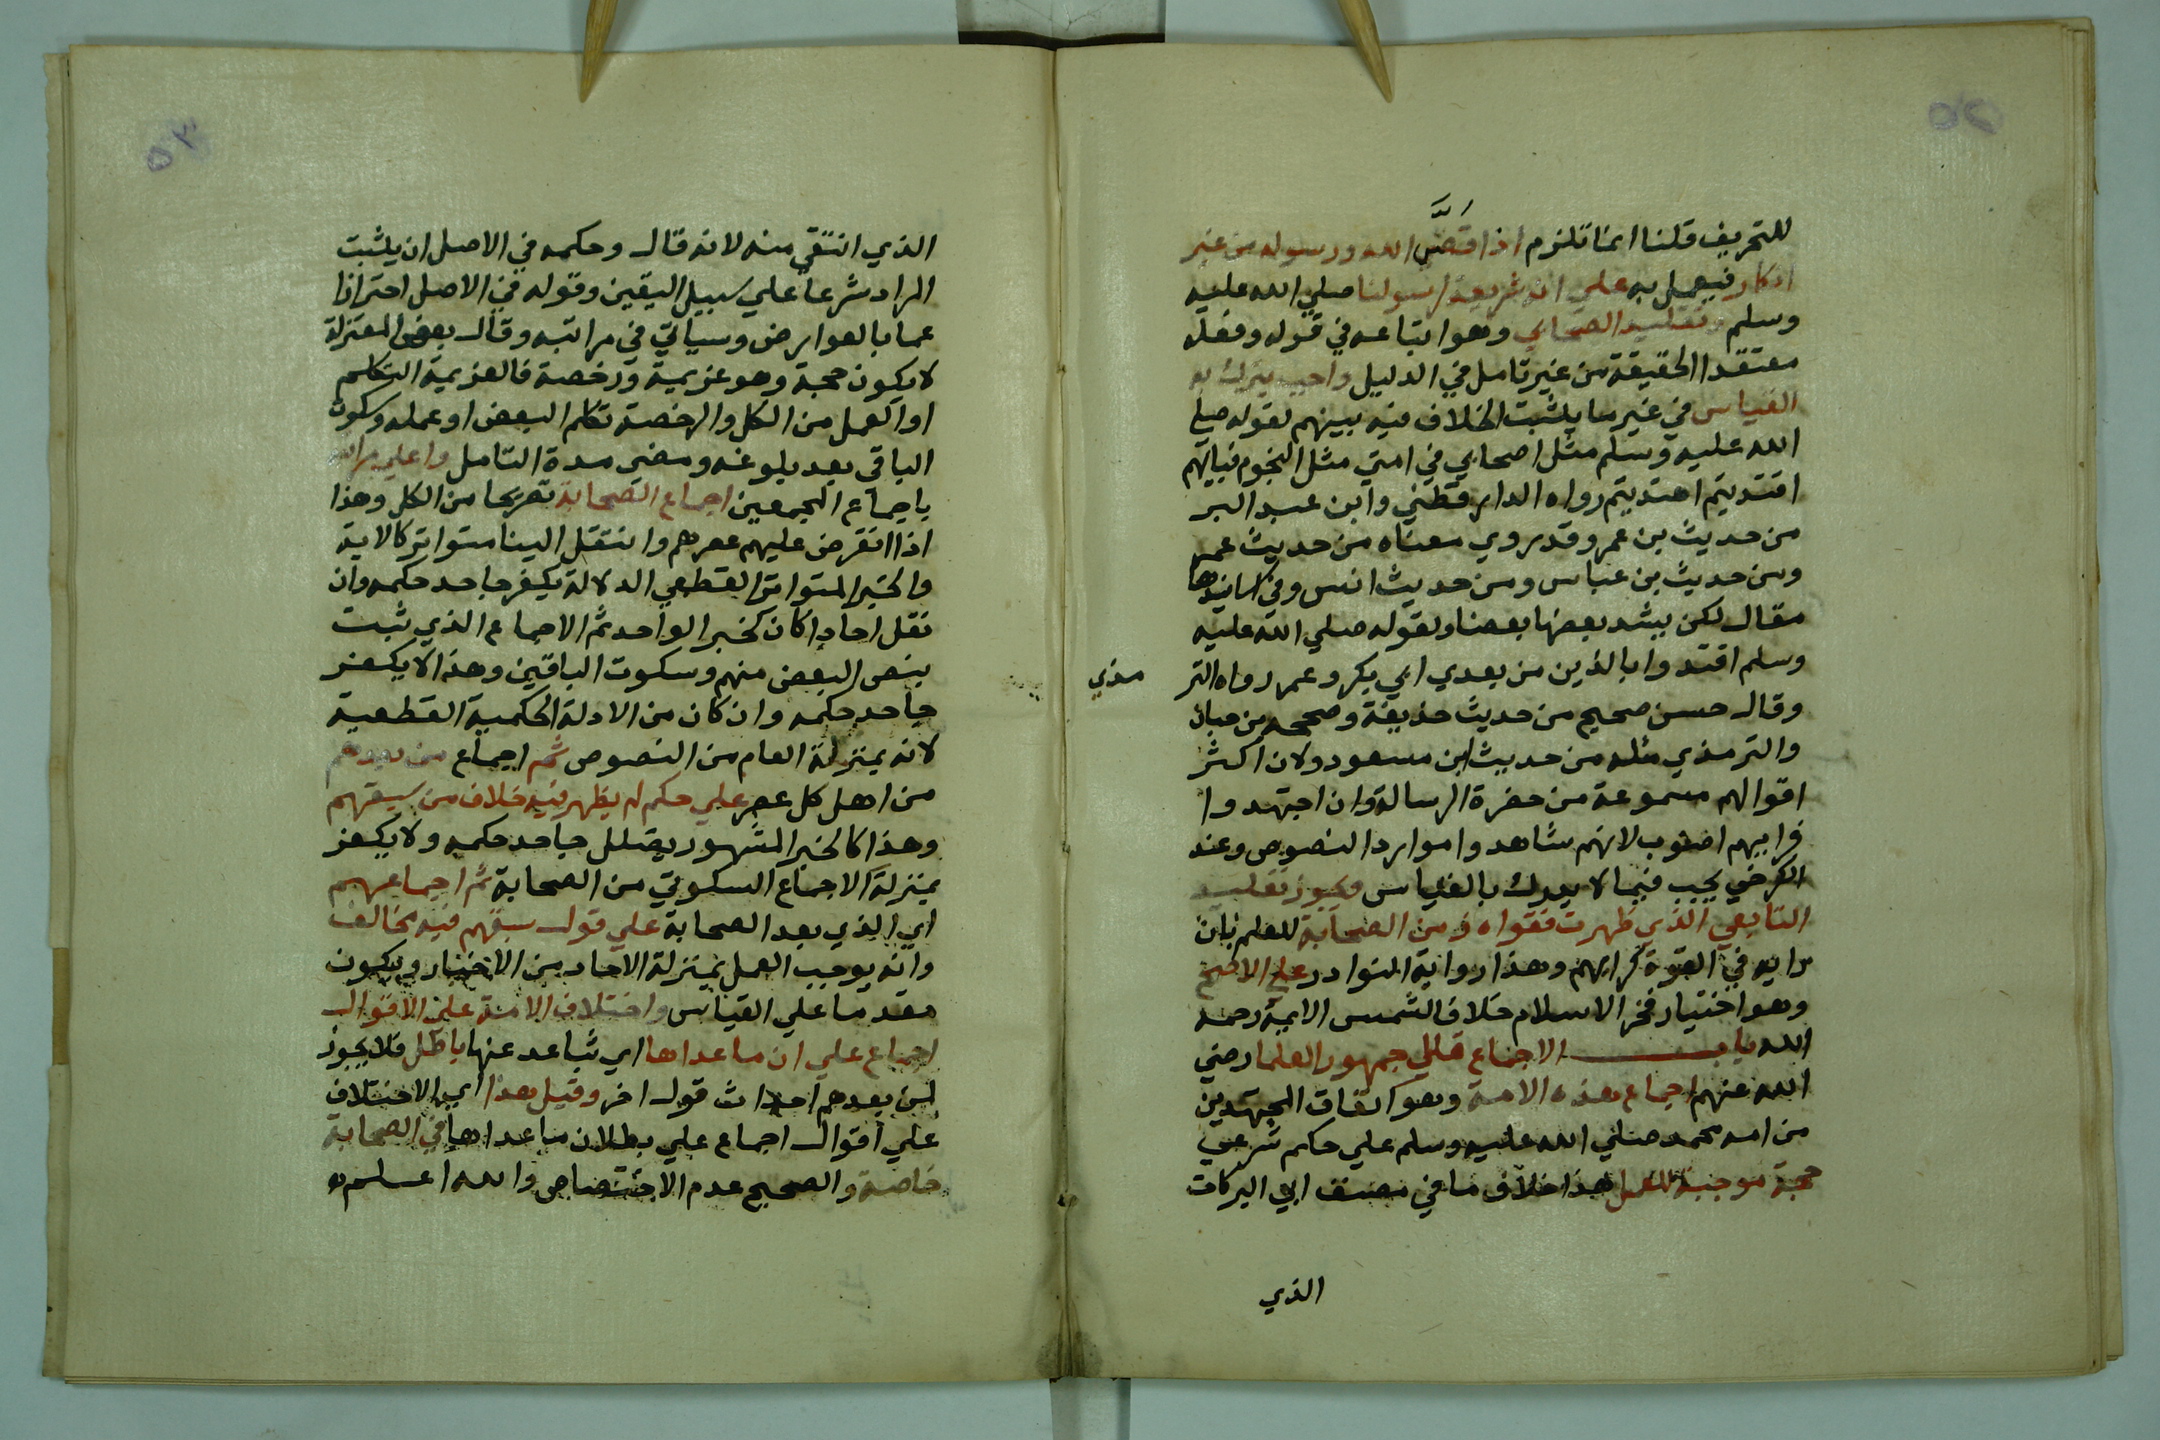 للتحريف قلنا انما تلزم اذا قص الله ورسوله من غير
انكار فيعمل به علي انه شريعة لرسولنا صلي الله عليه
وسلم وتقليد الصحابي وهو اتباعه في قوله وفعله
معتقدا الحقيقة من غير تامل في الدليل واجب يترك به
القياس في غير ما يثبت الخلاف فيه بينهم لقوله صلي
الله عليه وسلم مثل اصحابي في امتي مثل النجوم فبايهم
اقتديتم اهتديتم رواه الدارقطني وابن عبد البر
من حديث بن عمر وقد روي معناه من حديث عمر
ومن حديث بن عباس ومن حديث انس وفي اسانيدها
مقال لكن يشد بعضها بعضا ولقوله صلي الله عليه
وسلم اقتدوا بالذين من بعدي ابي بكر وعمر رواه التر
مذي
وقال حسن صحيح من حديث حذيفة وصححه بن حبان
والترمذي مثله من حديث ابن مسعود ولان اكثر
اقوالهم مسموعة من حضرة الرسالة وان اجتهدوا
فرايهم اصوب لانهم شاهدوا موارد النصوص وعند
الكرخي يجب فيما لا يدرك بالقياس ويجوز تقليد
التابعي الذي ظهرت فتواه زمن الصحابة للعلم بان
رايه في القوة كرايهم وهذا رواية النوادر علي الاصح
وهو اختيار فخر الاسلام خلافا لشمس الايمة رحمه
الله باب الاجماع قال جمهور العلما رضي
الله عنهم اجماع هذه الامة وهو اتفاق المجتهدين
من امة محمد صلي الله عليه وسلم علي حكم شرعي
حجة موجبة للعمل هذا خلاف ما في مصنف ابي البركات
الذي
٥٣
الذي انتقي منه لانه قال وحكمه في الاصل ان يثبت
المراد شرعا علي سبيل اليقين وقوله في الاصل احترازا
عما بالعوارض وسياتي في مراتبه وقال بعض المعتزلة
لا يكون حجة وهو عزيمة ورخصة فالعزيمة التكلم
او العمل من الكل والرخصة تكلم البعض او عمله وسكوت
الباقي بعد بلوغه ومضي مدة التامل واعلي مراتبه
باجماع المجمعين اجماع الصحابة تصريحا من الكل وهذا
اذا انقرض عليهم عصرهم وانتقل الينا متواتر كالاية
والخبر المتواتر القطعي الدلالة يكفر جاحد حكمه وان
نقل احادا كان كخبر الواحد ثم الاجماع الذي ثبت
بنص البعض منهم وسكوت الباقين وهذا لا يكفر
جاحد حكمه وان كان من الادلة الحكمية القطعية
لانه بمنزلة العام من النصوص ثم اجماع من بعدهم
من اهل كل عصر علي حكم لم يظهر فيه خلاف من سبقهم
وهذا كالخبر المشهور يضلل جاحد حكمه ولا يكفر
بمنزلة الاجماع السكوتي من الصحابة ثم اجماعهم
اي الذي بعد الصحابة علي قول سبقهم فيه مخالف
وانه يوجب العمل بمنزلة الاحاد من الاخبار ويكون
مقدما علي القياس واختلاف الامة علي الاقوال
اجماع علي ان ما عداها اي تباعد عنها باطل فلا يجوز
لمن بعدهم احداث قول اخر وقيل هذا اي الاختلاف
علي اقوال اجماع علي بطلان ما عداها في الصحابة
خاصة والصحيح عدم الاختصاص والله اعلم